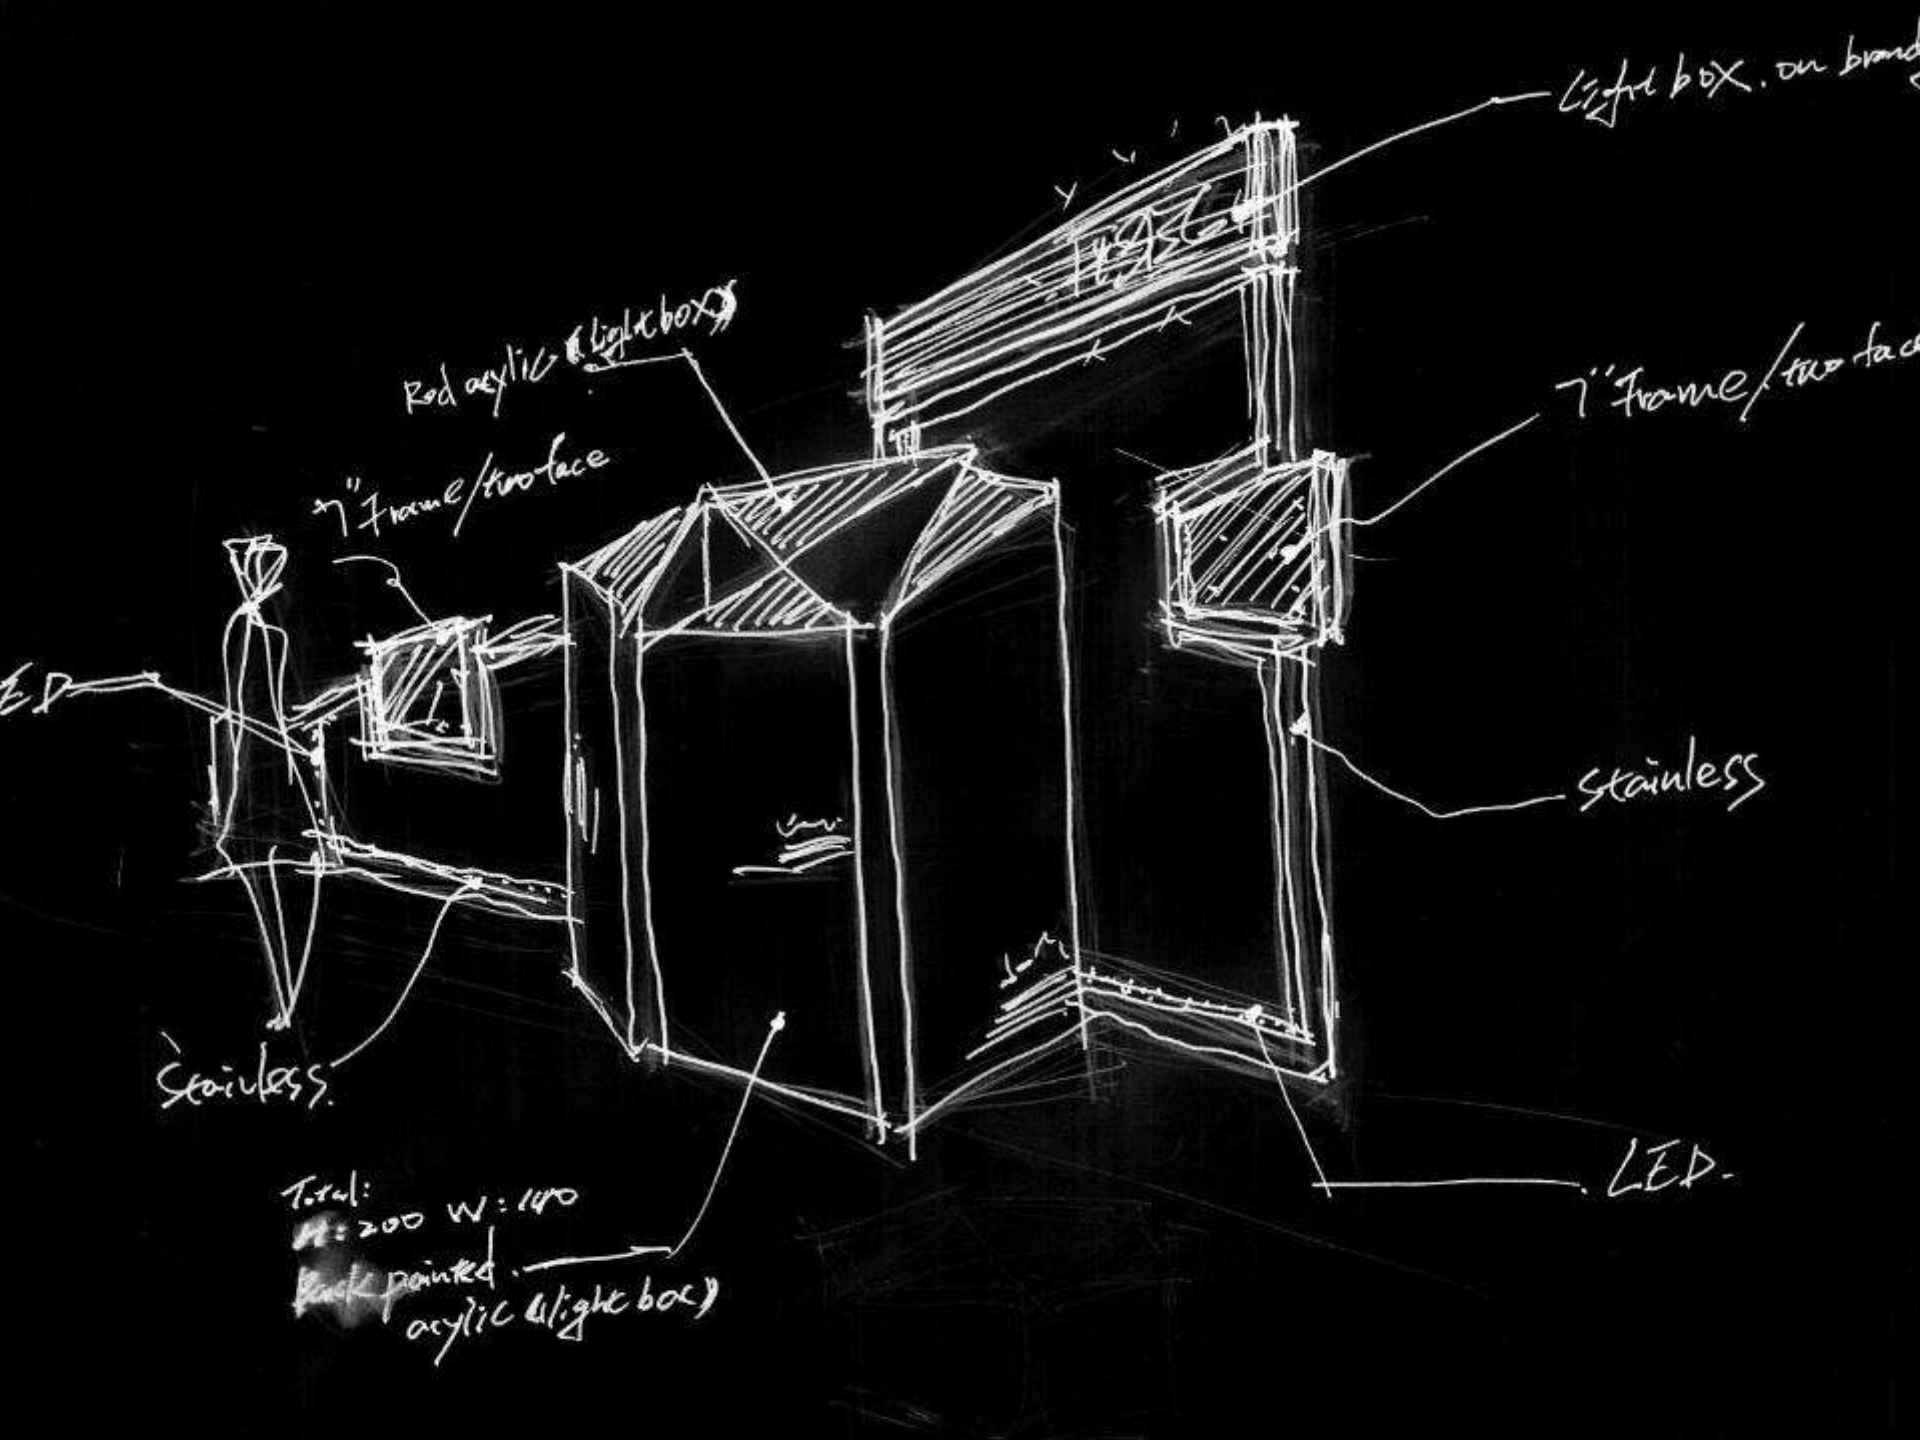 Light box. on brand
Red acylic (Lightbox)
7" Frame/two face
7" Frame/two face
ED
Stainless
Stainless.
LED.
Total:
H:200 W:140
Back painted.
acylic (lightbox)